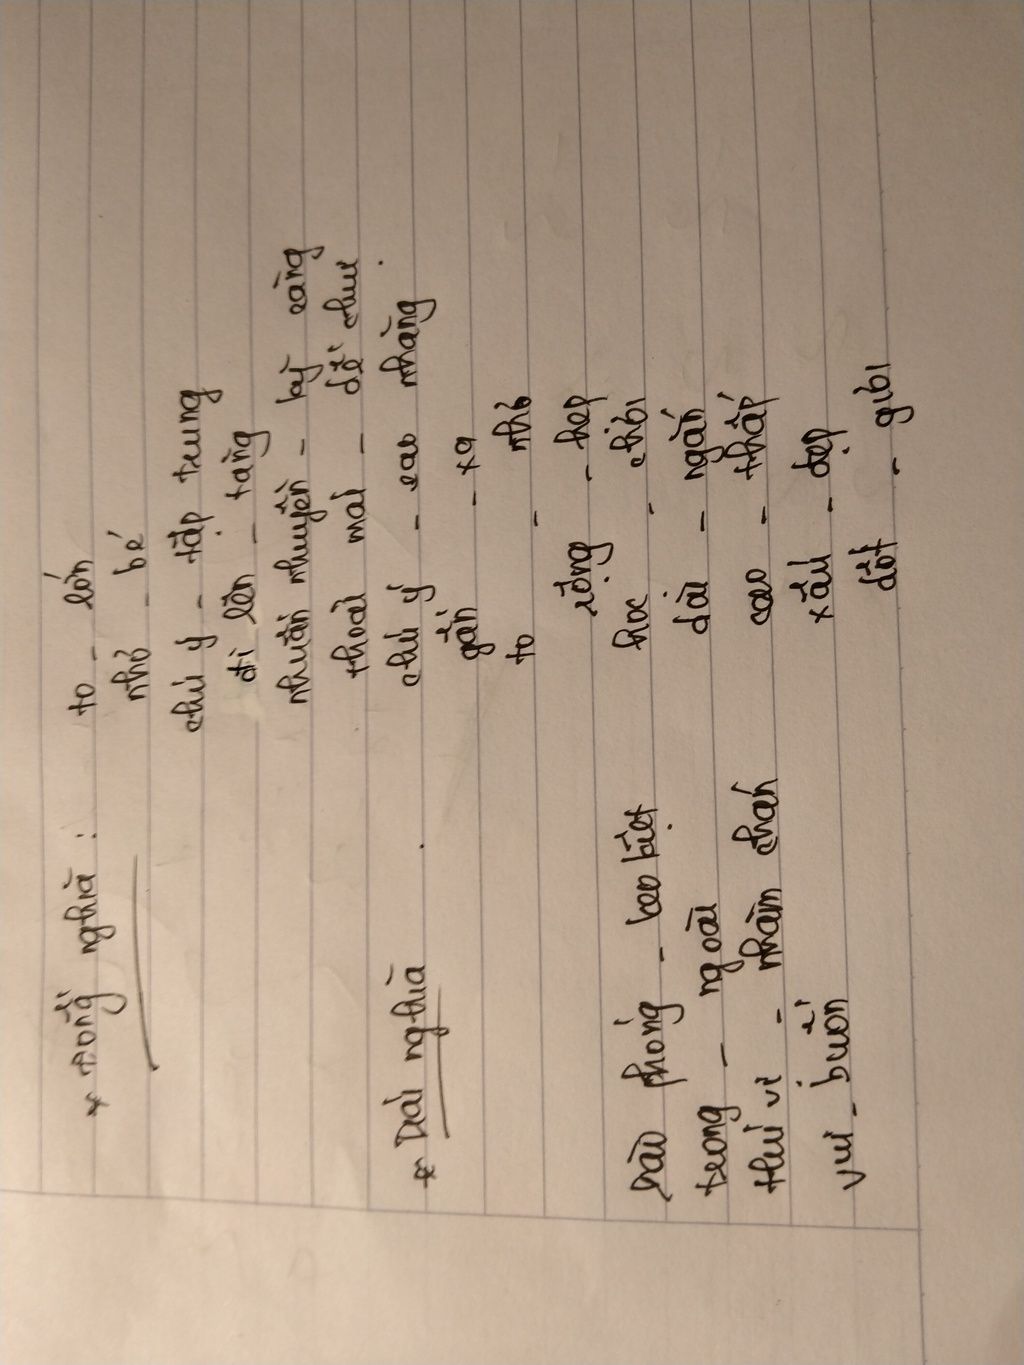 * Đồng nghĩa : to - lớn
nhỏ - bé
chú ý - tập trung
đi lên - tăng
nhuần nhuyễn - kỹ càng
thoải mái - dễ chịu
* Trái nghĩa
chú ý - lao nhăng
gần - xa
to - nhỏ
rộng - hẹp
học - chơi
dài - ngắn
cao - thấp
xấu - đẹp
dốt - giỏi
phóng - keo kiệt
trong - ngoài
thú vị - nhàm chán
vui - buồn